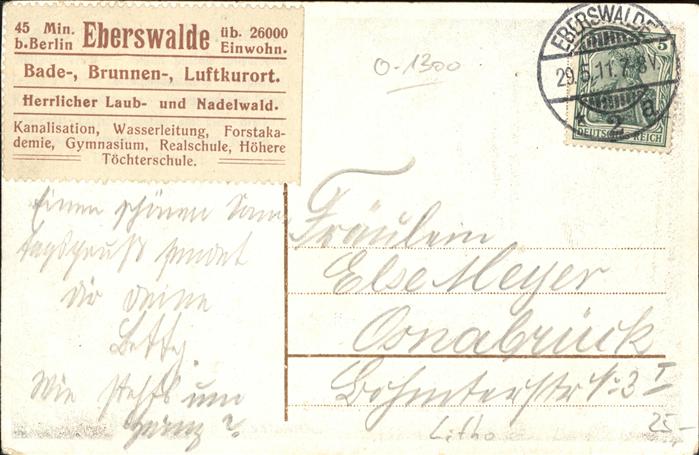 45 Min. b.Berlin Eberswalde üb. 26000 Einwohn.
Bade-, Brunnen-, Luftkurort.
Herrlicher Laub- und Nadelwald.
Kanalisation, Wasserleitung, Forstaka-
demie, Gymnasium, Realschule, Höhere
Töchterschule.
0-1300
EBERSWALDE
29.5.11.7-8V.
* 2 B
5
DEUTSCHES REICH
Einen schönen Sonn-
tagsgruß sendet
dir deine
Betty.
Wie stehts um
Fräulein
Else Meyer
Osnabrück
Bohmterstr. No 3 I
Litho
25-